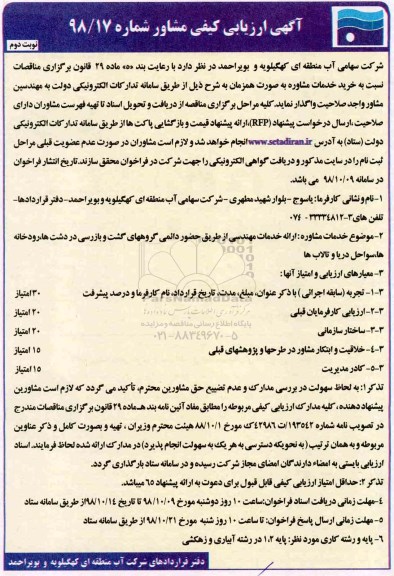 آگهی ارزیابی کیفی مشاور شماره ۹۸/۱۷
نوبت دوم
شرکت سهامی آب منطقه ای کهگیلویه و بویراحمد در نظر دارد با رعایت بند «ه» ماده ۲۹ قانون برگزاری مناقصات
نسبت به خرید خدمات مشاوره به صورت همزمان به شرح ذیل از طریق سامانه تدارکات الکترونیکی دولت به مهندسین
مشاور واجد صلاحیت واگذار نماید. کلیه مراحل برگزاری مناقصه از دریافت و تحویل اسناد تا تهیه فهرست مشاوران دارای
صلاحیت، ارسال درخواست پیشنهاد (RFP)، ارائه پیشنهاد قیمت و بازگشایی پاکت ها از طریق سامانه تدارکات الکترونیکی
دولت (ستاد) به آدرس www.setadiran.ir انجام خواهد شد و لازم است مشاوران در صورت عدم عضویت قبلی مراحل
ثبت نام را در سایت مذکور و دریافت گواهی الکترونیکی را جهت شرکت در فراخوان محقق سازند. تاریخ انتشار فراخوان
در سامانه ۹۸/۱۰/۰۹ می باشد.
۱- نام و نشانی کارفرما: یاسوج - بلوار شهید مطهری - شرکت سهامی آب منطقه ای کهگیلویه و بویراحمد - دفتر قراردادها-
تلفن های ۳-۳۳۳۳۴۸۱۲
۲- موضوع خدمات مشاوره: ارائه خدمات مهندسی از طریق حضور دائمی گروههای گشت و بازرسی در دشت ها، رودخانه
ها، سواحل دریا و تالاب ها
۳- معیارهای ارزیابی و امتیاز آنها:
۳-۱- تجربه (سابقه اجرائی) با ذکر عنوان، مبلغ، مدت، تاریخ قرارداد، نام کارفرما و درصد پیشرفت ۳۰ امتیاز
۳-۲- ارزیابی کارفرمایان قبلی ۲۰ امتیاز
۳-۳- ساختار سازمانی ۲۰ امتیاز
۳-۴- خلاقیت و ابتکار مشاور در طرحها و پژوهشهای قبلی ۱۵ امتیاز
۳-۵- کادر مدیریت ۱۵ امتیاز
پایگاه اطلاع رسانی مناقصه و مزایده
۰۲۱-۸۸۳۴۹۶۷۰-۵
تذکر۱: به لحاظ سهولت در بررسی مدارک و عدم تضییع حق مشاورین محترم، تأکید می گردد که لازم است مشاورین
پیشنهاد دهنده، کلیه مدارک ارزیابی کیفی مربوطه را مطابق مفاد آئین نامه بند هـ ماده ۲۹ قانون برگزاری مناقصات مندرج
در تصویب نامه شماره ۱۹۳۵۴۲/ت۴۲۹۸۶ک مورخ ۸۸/۱۰/۱ هیئت محترم وزیران، تهیه و بصورت کامل و ذکر عناوین
مربوطه و به همان ترتیب (به نحویکه دسترسی به هر یک به سهولت انجام پذیرد) در مدارک ارائه شده لحاظ فرمایند. اسناد
ارزیابی بایستی به امضاء دارندگان امضای مجاز شرکت رسیده و در سامانه ستاد بارگذاری گردد.
تذکر ۲: حداقل امتیاز ارزیابی کیفی قابل قبول برای دعوت به ارائه پیشنهاد ۶۵ میباشد.
۴-مهلت زمانی دریافت اسناد فراخوان: ساعت ۱۰ روز دوشنبه مورخ ۹۸/۱۰/۰۹ تا تاریخ ۹۸/۱۰/۱۴ از طریق سامانه ستاد
۵- مهلت زمانی ارسال پاسخ فراخوان: تا ساعت ۱۰ روز شنبه مورخ ۹۸/۱۰/۲۱ از طریق سامانه ستاد
۶- پایه و رشته کاری مورد نظر: پایه ۱،۲ در رشته آبیاری و زهکشی
دفتر قراردادهای شرکت آب منطقه ای کهگیلویه و بویراحمد